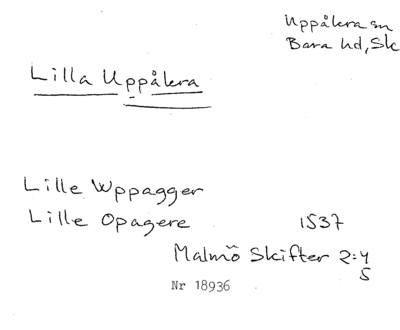 Uppåkra sn
Bara hd, Sk
Lilla Uppåkra
Lille Wppagger
Lille Opagere 1537
Malmö Skifter 2:4
5
Nr 18936